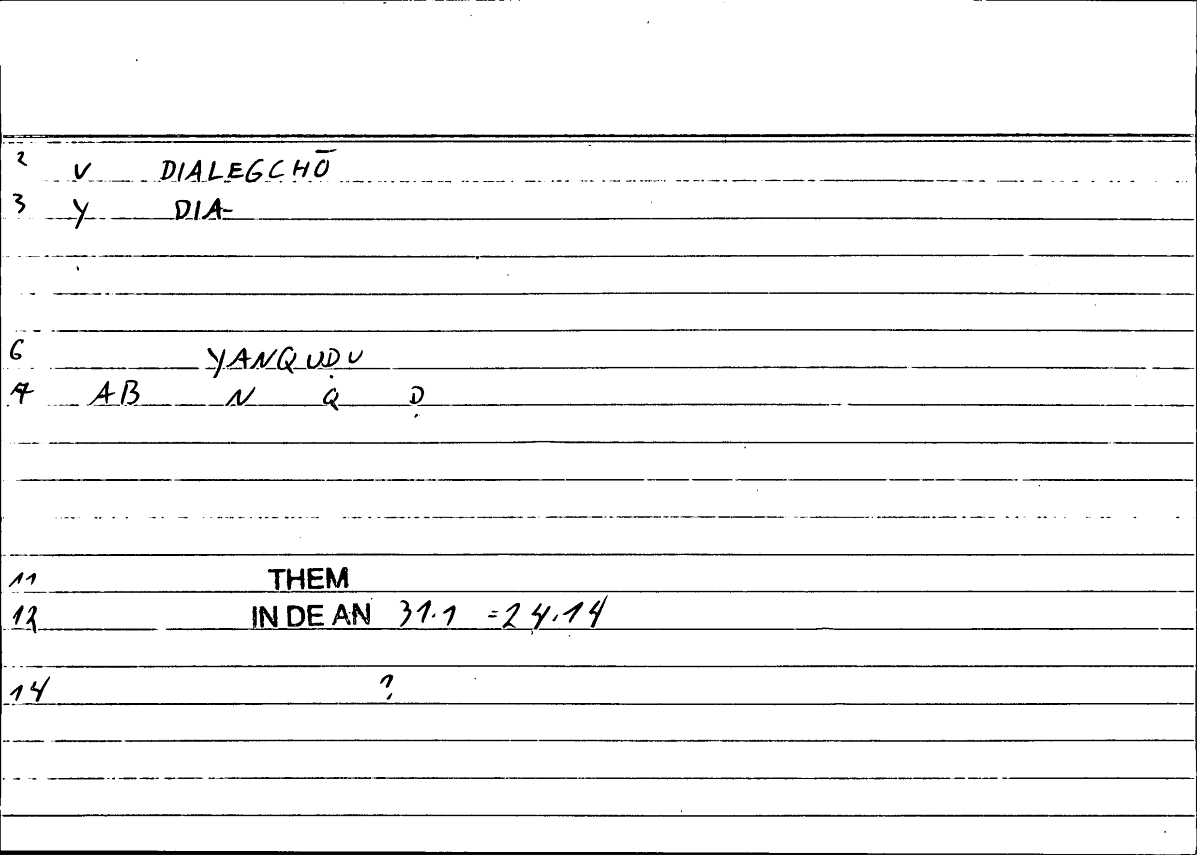 2 V DIALEGCHŌ
3 Y DIA-
6 YANQUḌU
7 AB N Q Ḍ
11 THEM
12 IN DE AN 31.1 =24.14
14 ?